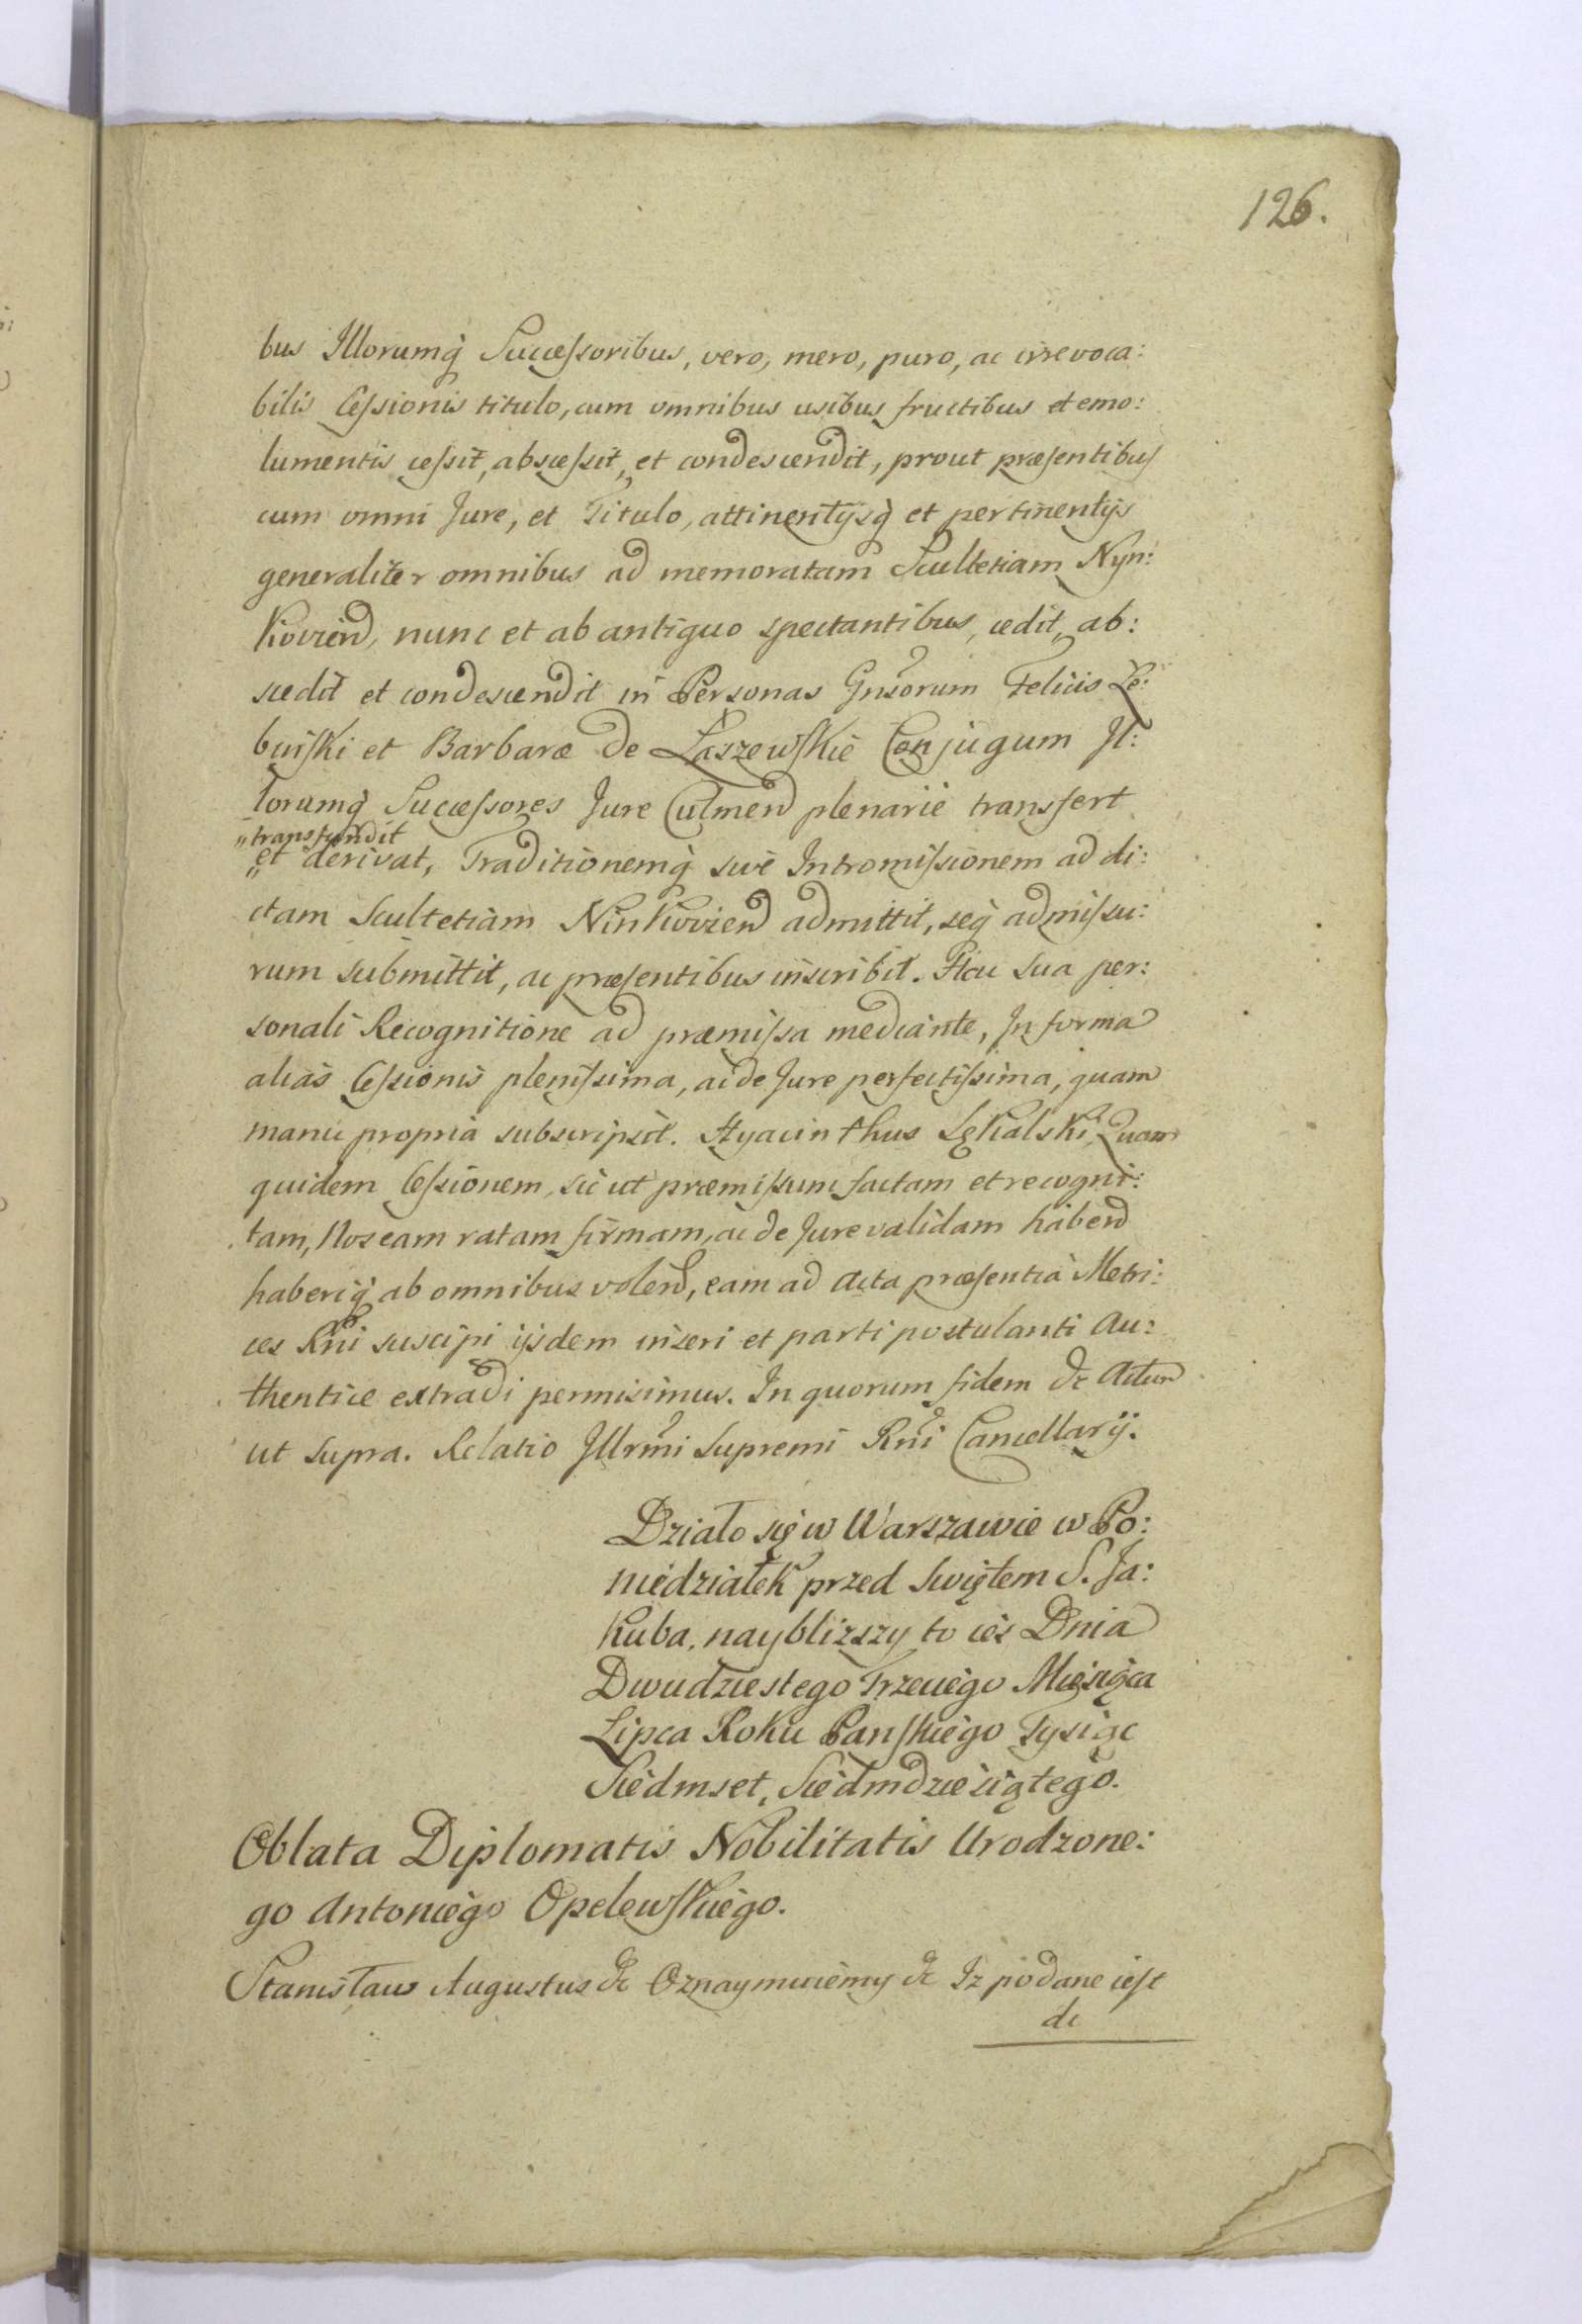 126.
bus Illorumq̀ Succeſsoribus, vero, mero, puro, ac irrevoca:
bilis Ceſsionis titulo, cum omnibus usibus fructibus et emo:
lumentis ceſsit, absceſsit, et condescendit, prout præsentibus
cum omni Jure, et Titulo, attinentijsq̀ et pertinentijs
generaliter omnibus ad memoratam Scultetiam Nyn:
kovien̄, nunc et ab antiquo spectantibus, cedit, ab:
scedit et condescendit in Personas Gnsorum Felicis Łe:
buiſki et Barbaræ de Łaszewſkie Conjugum Il:
lorumq̀ Succeſsores Jure Culmen̄ plenarie transfert
„transfundit
„et derivat, Traditionemq̀ sivè Intromiſsionem ad di:
ctam Scultetiam Ninkovien̄ admittit, seq̀ admiſsu:
rum submittit, ac præsentibus inscribit. Hac sua per:
sonali Recognitione ad præmiſsa mediante, In forma
alias Ceſsionis pleniſsima, ac de Jure perfectiſsima, quam
manu propria subscripsit. Hyacinthus Lękialski, Quam
quidem Ceſsionem, sic ut præmiſsum factam et recogni:
tam, Nos eam ratam firmam, ac de Jure validam haben̄
haberiq̀ ab omnibus volen̄, eam ad Acta præsentia Metri:
ces Rni suscipi ijsdem inseri et parti postulanti Au:
thentice extradi permisimus. In quorum fidem &c Actum
ut supra. Relatio Illrmi Supremi Rni Cancellarij.
Działo się w Warszawie w Po:
niedziałek przed Swiętem S. Ja:
kuba, nayblizszy to ies Dnia
Dwudziestego Trzeciego Miesiąca
Lipca Roku Panſkiego Tysiąc
Siedmset, Siedmdziesiątego.
Oblata Diplomatis Nobilitatis Urodzone:
go Antoniego Opelewſkiego.
Stanisław Augustus &c Oznaymuiemy &c Iz podane ieſt
&c